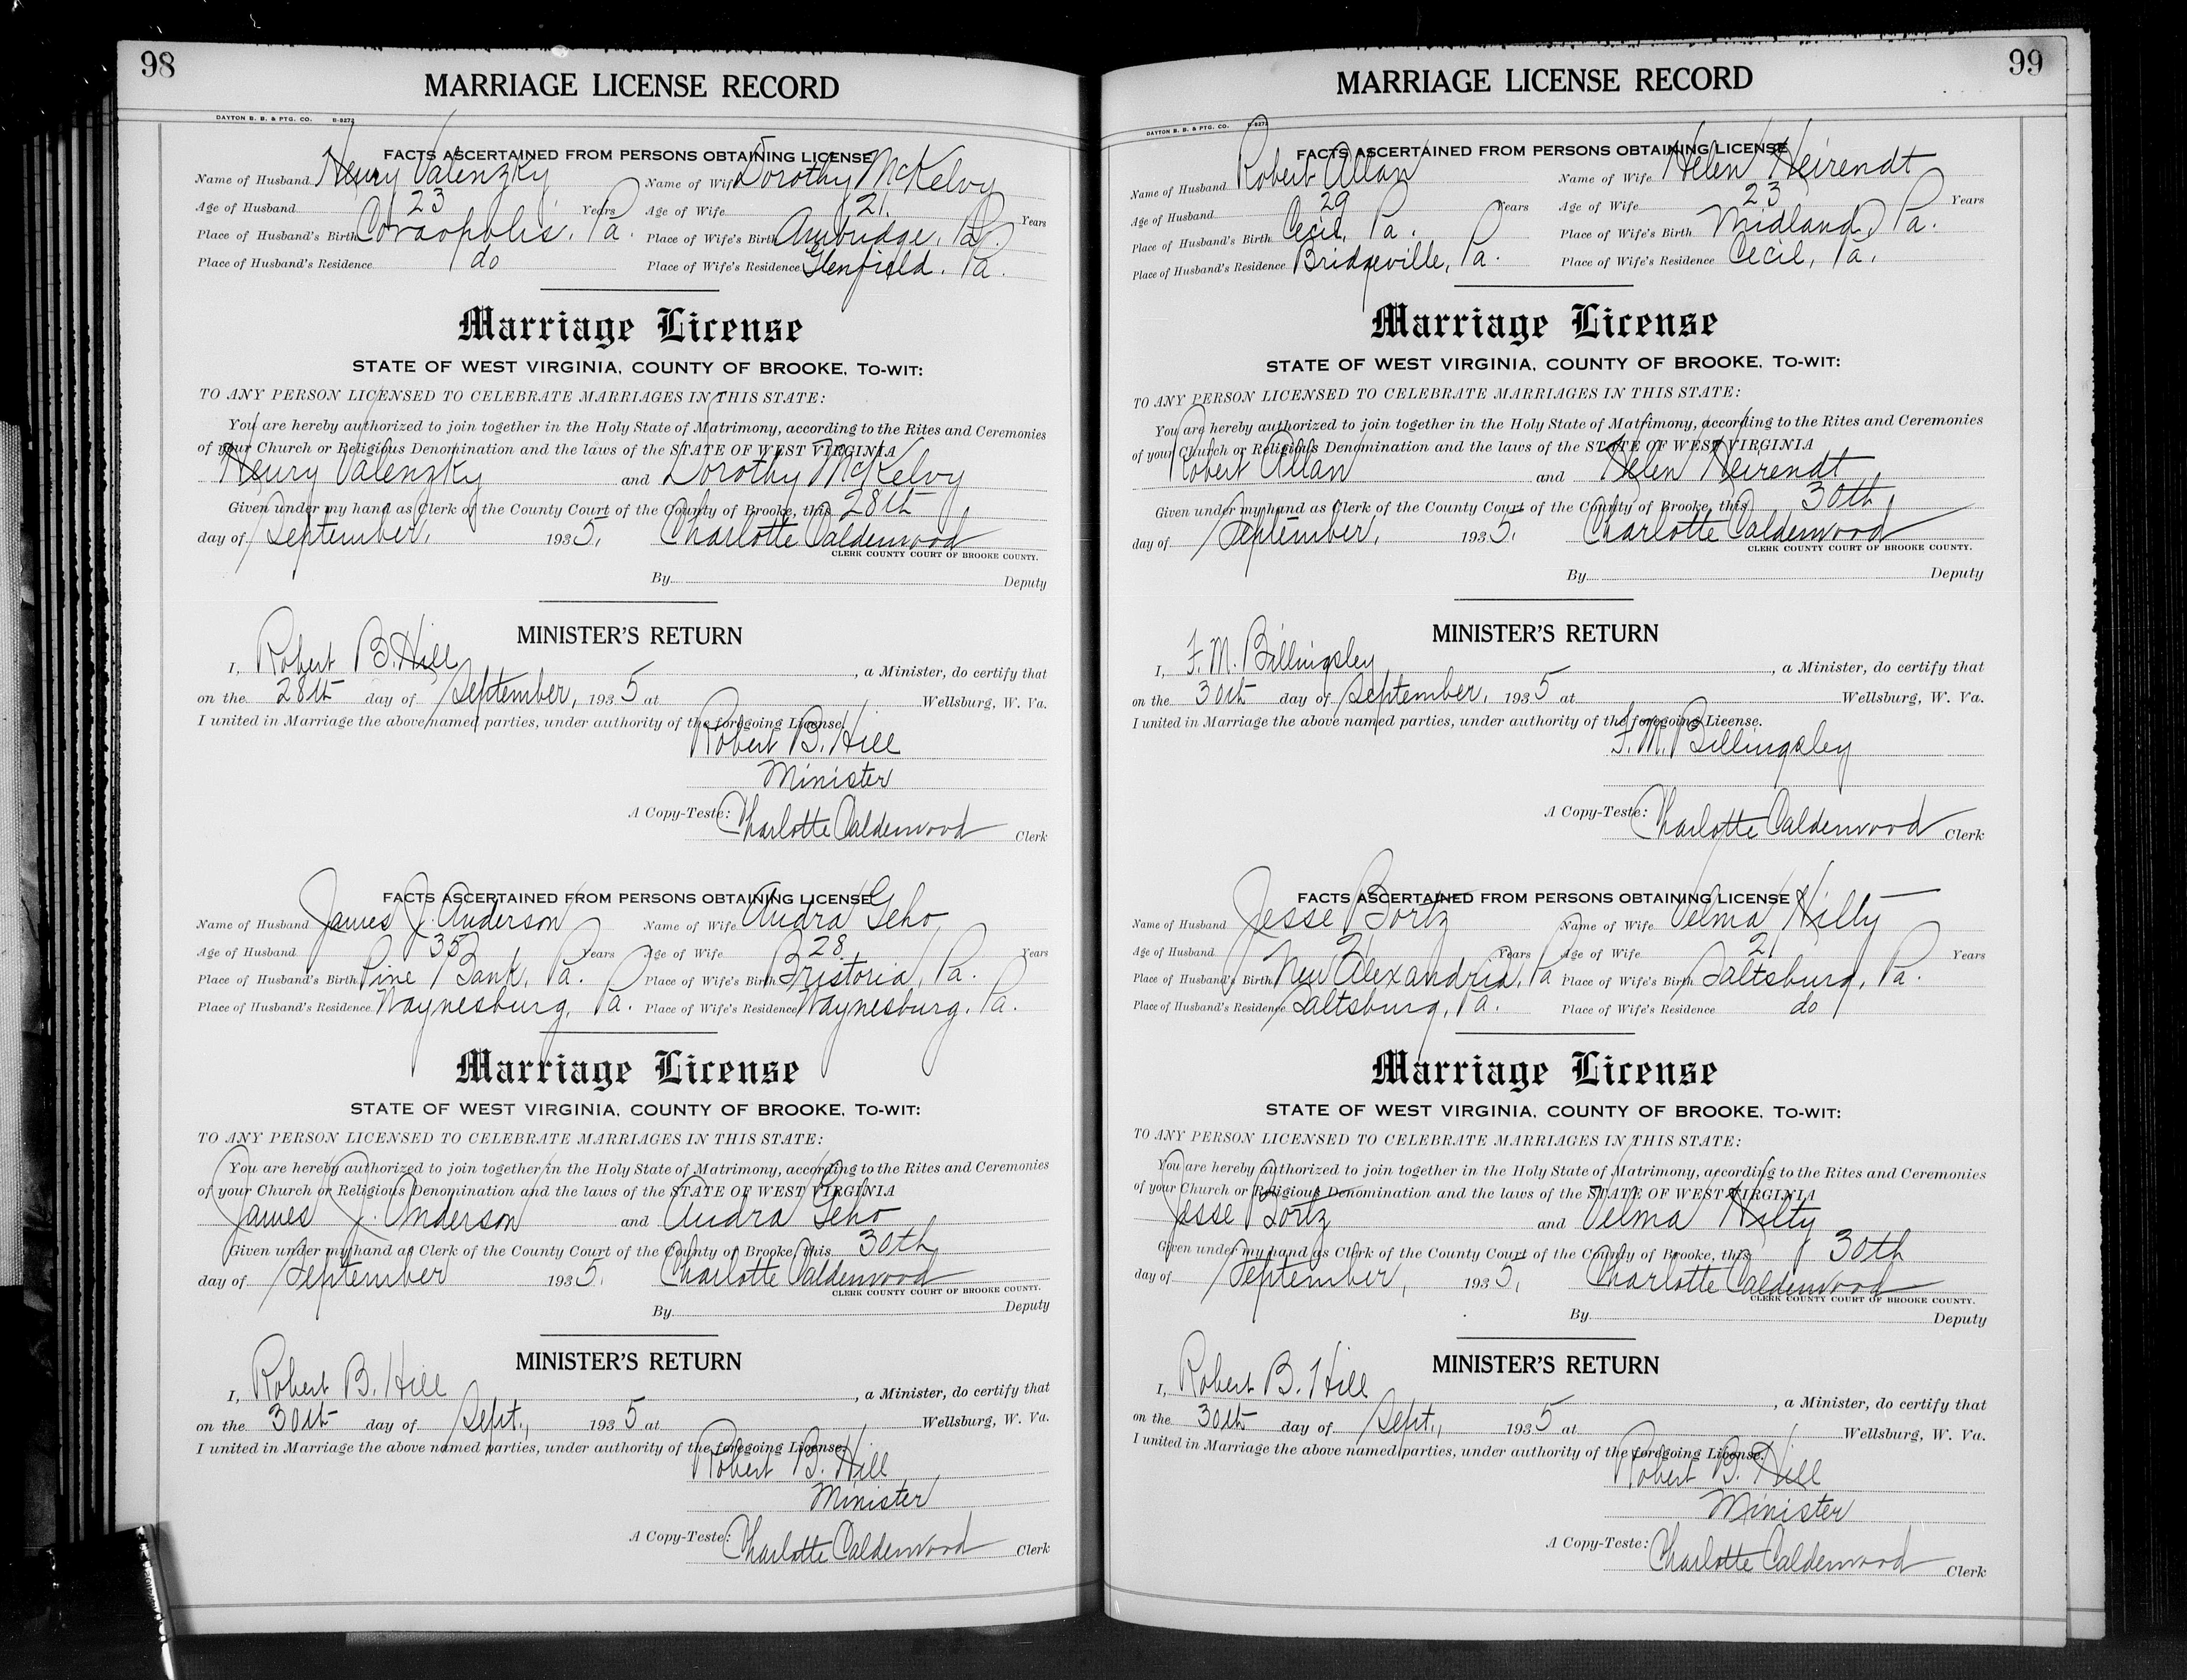 98
MARRIAGE LICENSE RECORD
DAYTON B. B. & PTG. CO. B-8272
FACTS ASCERTAINED FROM PERSONS OBTAINING LICENSE
Name of Husband Henry Valenzky Name of Wife Dorothy McKelvy
Age of Husband 23 Years Age of Wife 21. Years
Place of Husband's Birth Coraopolis, Pa. Place of Wife's Birth Ambridge, Pa.
Place of Husband's Residence do Place of Wife's Residence Glenfield, Pa.
Marriage License
STATE OF WEST VIRGINIA, COUNTY OF BROOKE, To-wit:
TO ANY PERSON LICENSED TO CELEBRATE MARRIAGES IN THIS STATE:
You are hereby authorized to join together in the Holy State of Matrimony, according to the Rites and Ceremonies
of your Church or Religious Denomination and the laws of the STATE OF WEST VIRGINIA
Henry Valenzky and Dorothy McKelvy
Given under my hand as Clerk of the County Court of the County of Brooke, this 28th
day of September, 1935, Charlotte Caldenwood
CLERK COUNTY COURT OF BROOKE COUNTY.
By Deputy
MINISTER'S RETURN
I, Robert B. Hill, a Minister, do certify that
on the 28th day of September, 1935 at Wellsburg, W. Va.
I united in Marriage the above named parties, under authority of the foregoing License.
Robert B. Hill
Minister
A Copy-Teste: Charlotte Caldenwood Clerk
FACTS ASCERTAINED FROM PERSONS OBTAINING LICENSE
Name of Husband James J. Anderson Name of Wife Audra Geho
Age of Husband 35 Years Age of Wife 28. Years
Place of Husband's Birth Pine Bank, Pa. Place of Wife's Birth Bristoria, Pa.
Place of Husband's Residence Waynesburg, Pa. Place of Wife's Residence Waynesburg, Pa.
Marriage License
STATE OF WEST VIRGINIA, COUNTY OF BROOKE, To-wit:
TO ANY PERSON LICENSED TO CELEBRATE MARRIAGES IN THIS STATE:
You are hereby authorized to join together in the Holy State of Matrimony, according to the Rites and Ceremonies
of your Church or Religious Denomination and the laws of the STATE OF WEST VIRGINIA
James J. Anderson and Audra Geho
Given under my hand as Clerk of the County Court of the County of Brooke, this 30th
day of September 1935, Charlotte Caldenwood
CLERK COUNTY COURT OF BROOKE COUNTY.
By Deputy
MINISTER'S RETURN
I, Robert B. Hill, a Minister, do certify that
on the 30th day of Sept., 1935 at Wellsburg, W. Va.
I united in Marriage the above named parties, under authority of the foregoing License.
Robert B. Hill
Minister
A Copy-Teste: Charlotte Caldenwood Clerk
99
MARRIAGE LICENSE RECORD
DAYTON B. B. & PTG. CO. B-8272
FACTS ASCERTAINED FROM PERSONS OBTAINING LICENSE
Name of Husband Robert Allan Name of Wife Helen Heirendt
Age of Husband 29 Years Age of Wife 23 Years
Place of Husband's Birth Cecil, Pa. Place of Wife's Birth Midland, Pa.
Place of Husband's Residence Bridgeville, Pa. Place of Wife's Residence Cecil, Pa.
Marriage License
STATE OF WEST VIRGINIA, COUNTY OF BROOKE, To-wit:
TO ANY PERSON LICENSED TO CELEBRATE MARRIAGES IN THIS STATE:
You are hereby authorized to join together in the Holy State of Matrimony, according to the Rites and Ceremonies
of your Church or Religious Denomination and the laws of the STATE OF WEST VIRGINIA
Robert Allan and Helen Heirendt
Given under my hand as Clerk of the County Court of the County of Brooke, this 30th
day of September, 1935, Charlotte Caldenwood
CLERK COUNTY COURT OF BROOKE COUNTY.
By Deputy
MINISTER'S RETURN
I, F. M. Billingsley, a Minister, do certify that
on the 30th day of September, 1935 at Wellsburg, W. Va.
I united in Marriage the above named parties, under authority of the foregoing License.
F. M. Billingsley
A Copy-Teste: Charlotte Caldenwood Clerk
FACTS ASCERTAINED FROM PERSONS OBTAINING LICENSE
Name of Husband Jesse Bortz Name of Wife Velma Hilty
Age of Husband 21 Years Age of Wife 21 Years
Place of Husband's Birth New Alexandria, Pa Place of Wife's Birth Saltsburg, Pa.
Place of Husband's Residence Saltsburg, Pa. Place of Wife's Residence do
Marriage License
STATE OF WEST VIRGINIA, COUNTY OF BROOKE, To-wit:
TO ANY PERSON LICENSED TO CELEBRATE MARRIAGES IN THIS STATE:
You are hereby authorized to join together in the Holy State of Matrimony, according to the Rites and Ceremonies
of your Church or Religious Denomination and the laws of the STATE OF WEST VIRGINIA
Jesse Bortz and Velma Hilty
Given under my hand as Clerk of the County Court of the County of Brooke, this 30th
day of September, 1935, Charlotte Caldenwood
CLERK COUNTY COURT OF BROOKE COUNTY.
By Deputy
MINISTER'S RETURN
I, Robert B. Hill, a Minister, do certify that
on the 30th day of Sept., 1935 at Wellsburg, W. Va.
I united in Marriage the above named parties, under authority of the foregoing License.
Robert B. Hill
Minister
A Copy-Teste: Charlotte Caldenwood Clerk